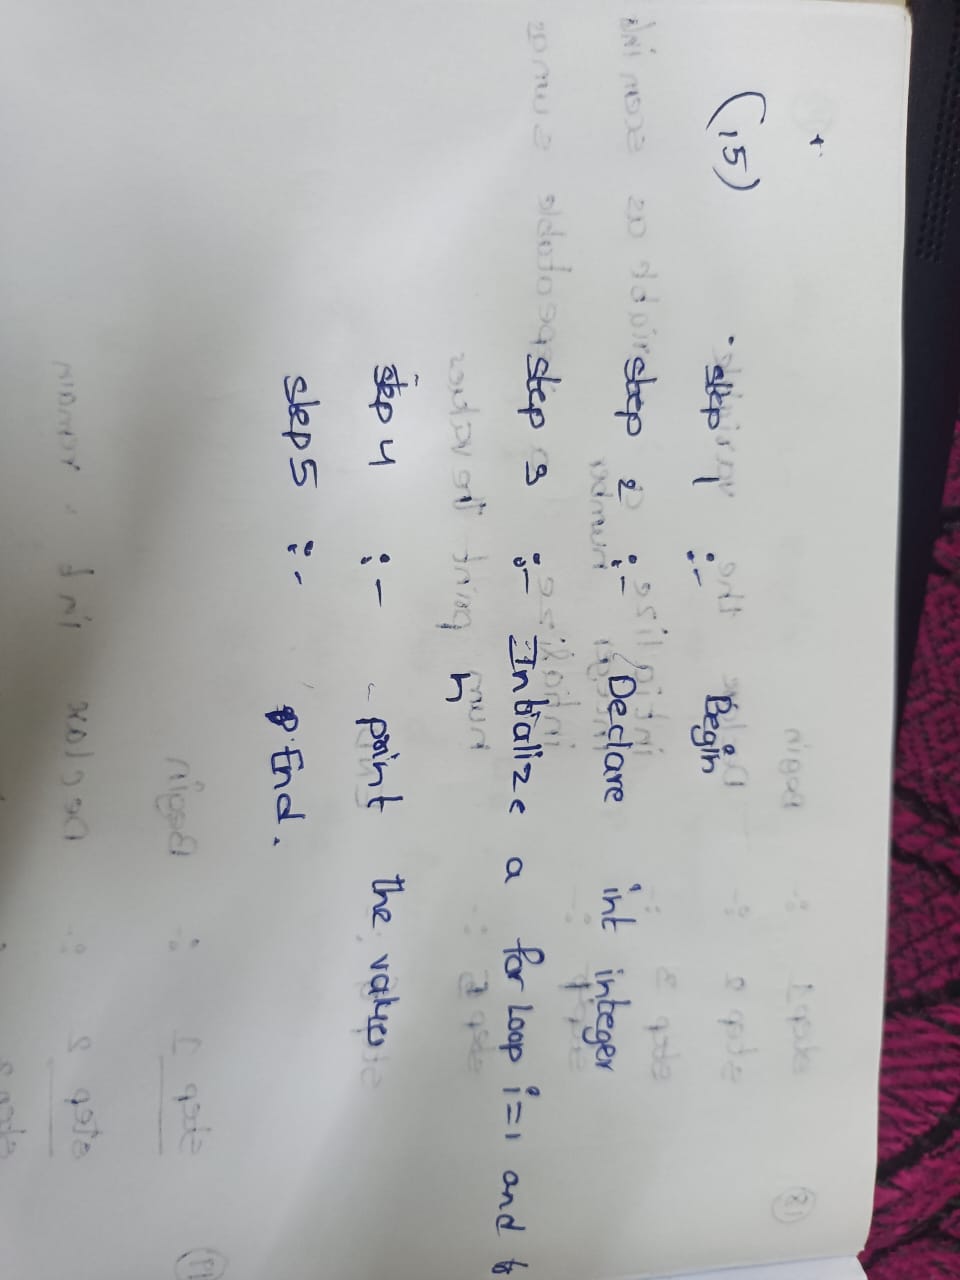 (15)
step 1 :- Begin
step 2 :- Declare int integer
step 3 :- Initialize a for loop i=1 and
4
step 4 :- print the values
step 5 :- End.